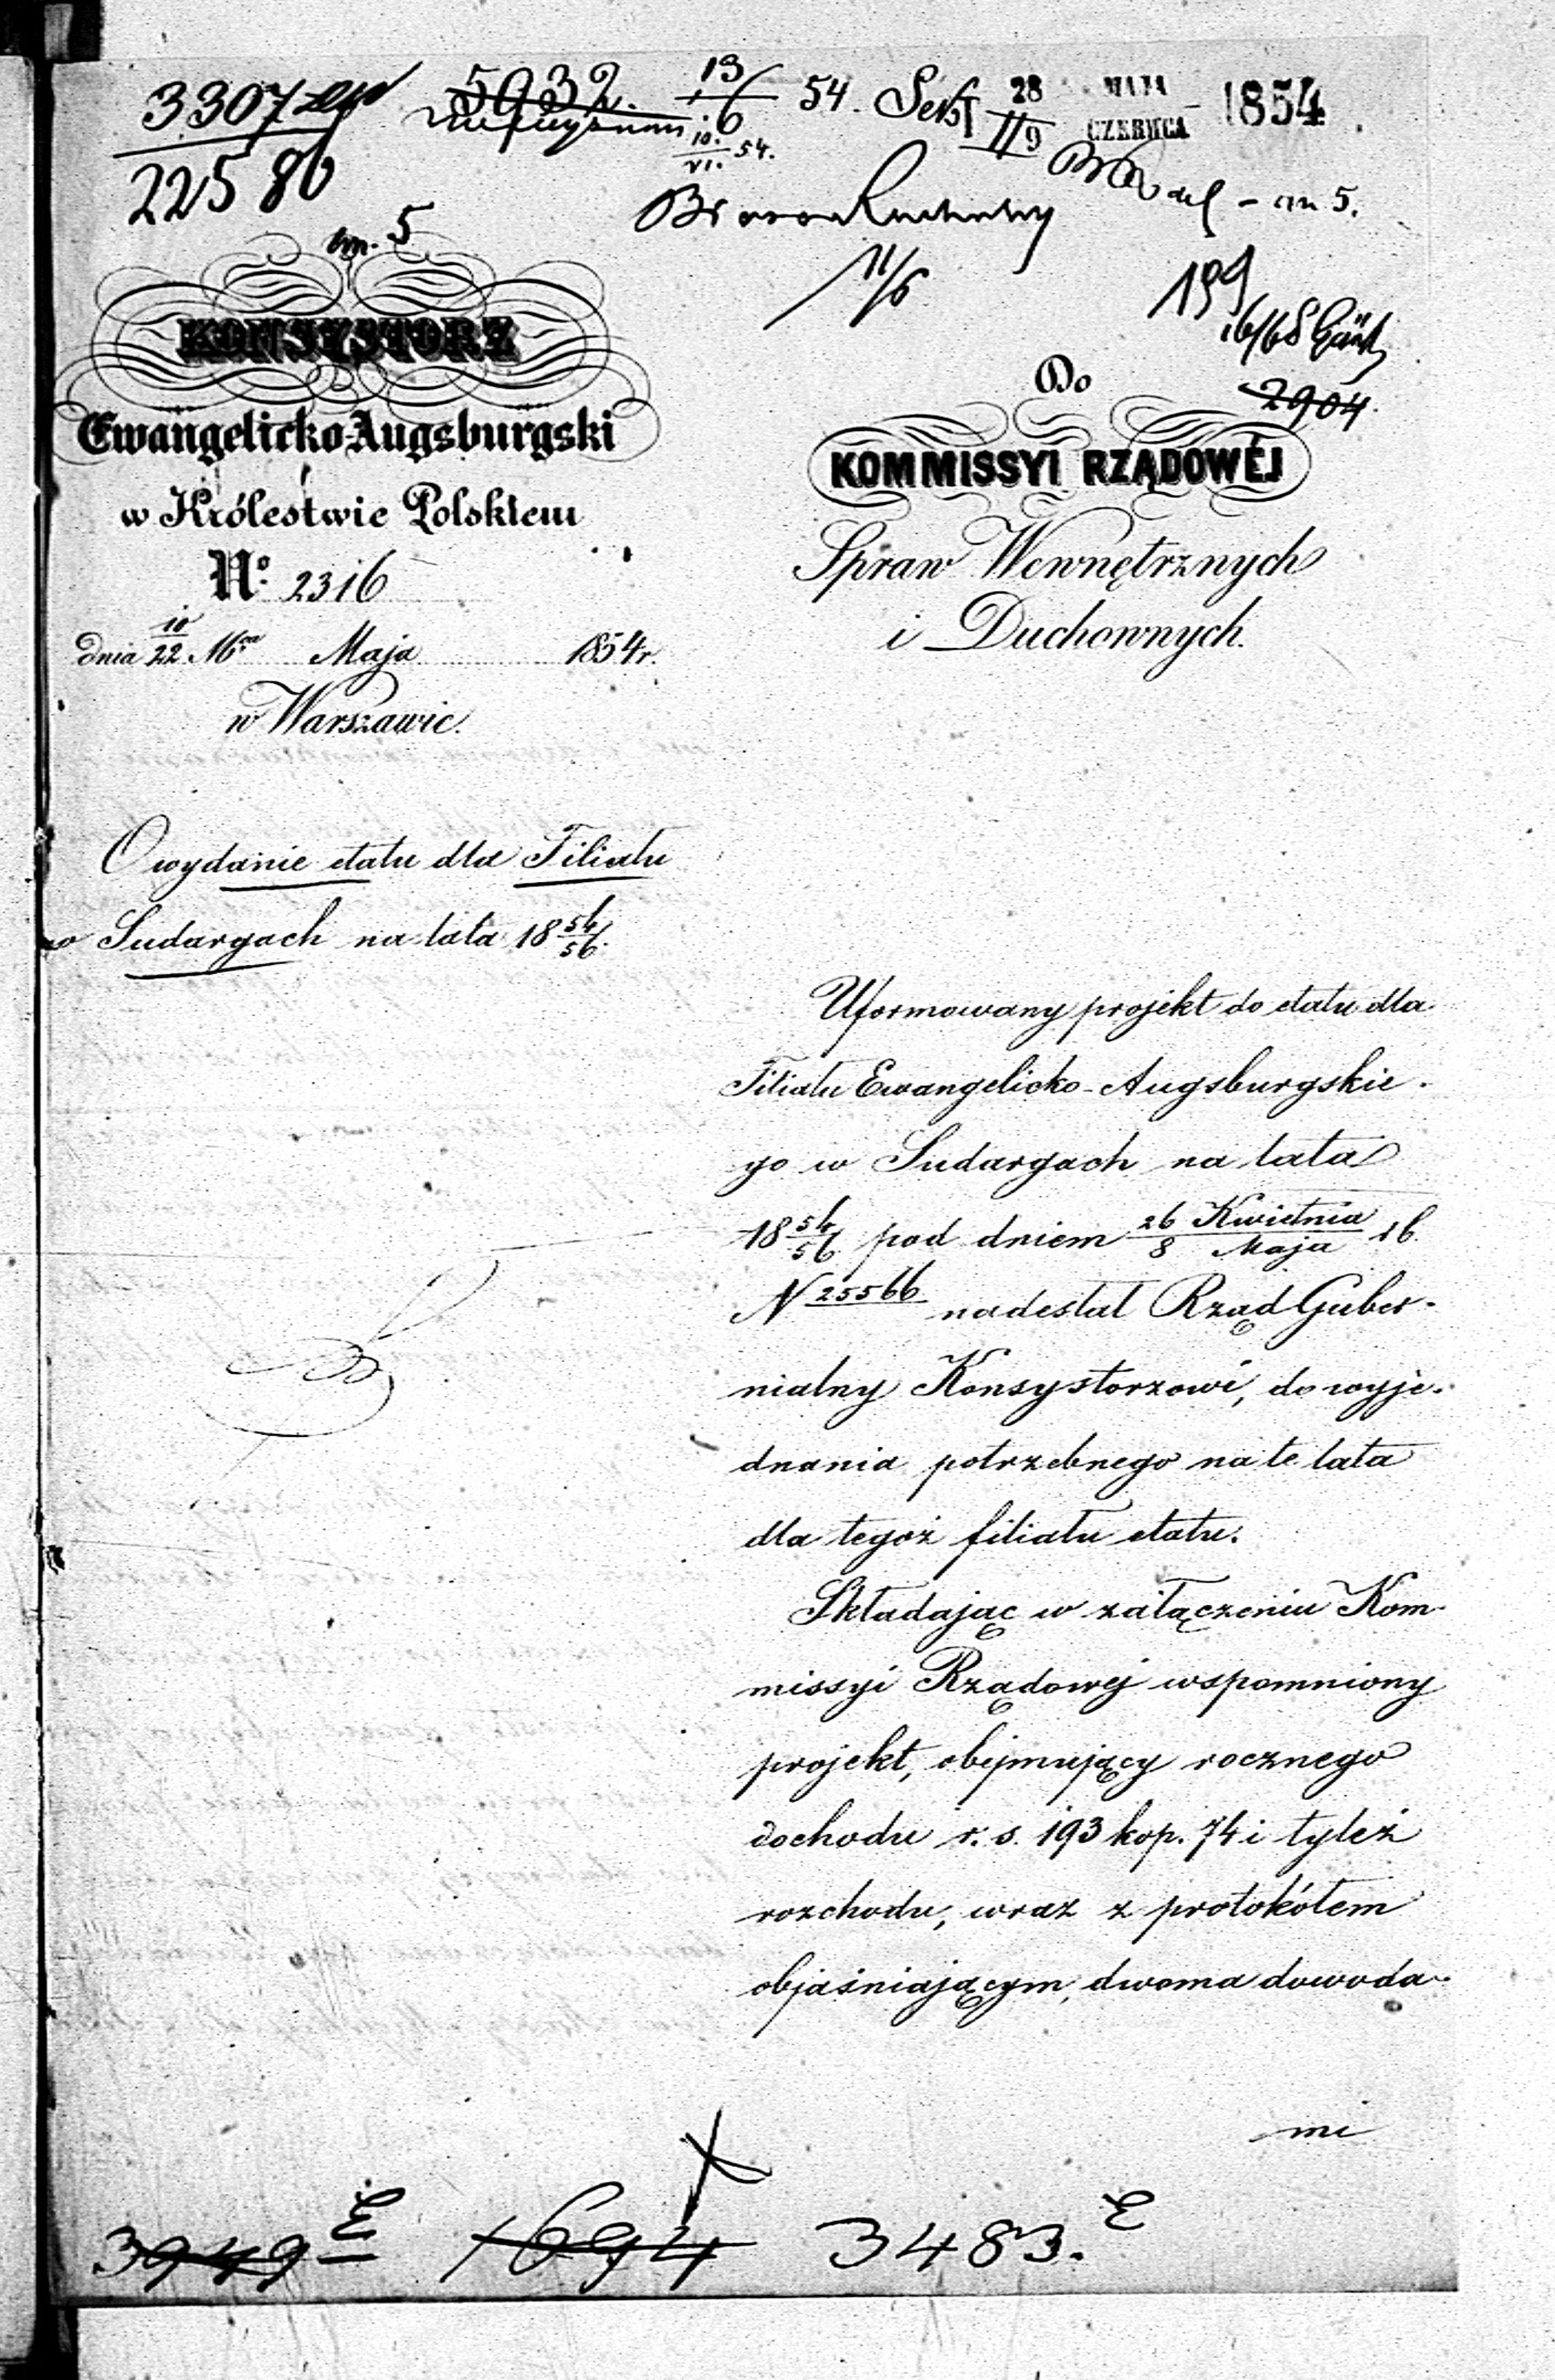 3307
22586
5932.
13/6 54. Sekt II 28/9 MAJA/CZERWCA 1854
10./VI. 54.
an 5.
11/6
199
2904
an. 5
KONSYSTORZ
Ewangelicko-Augsburgski
w Królestwie Polskiem
No. 2316
dnia 10/22 Mca Maja 1854 r.
w Warszawie.
Do
KOMMISSYI RZĄDOWÉJ
Spraw Wewnętrznych
i Duchownych.
O wydanie etatu dla Filiału
w Sudargach na lata 18 54/56.
Uformowany projekt do etatu dla
Filiału Ewangelicko-Augsburgskie-
go w Sudargach na lata
18 54/56 pod dniem 26 Kwietnia/8 Maja r b.
N 25566 nadesłał Rząd Guber-
nialny Konsystorzowi, do wyje-
dnania potrzebnego na te lata
dla tegoż filiału etatu.
Składając w załączeniu Kom-
missyi Rządowej wspomniony
projekt, obejmujący rocznego
dochodu r. s. 193 kop. 74 i tyleż
rozchodu, wraz z protokółem
objaśniającym, dwoma dowoda-
mi
3949 E 1694 3483. E